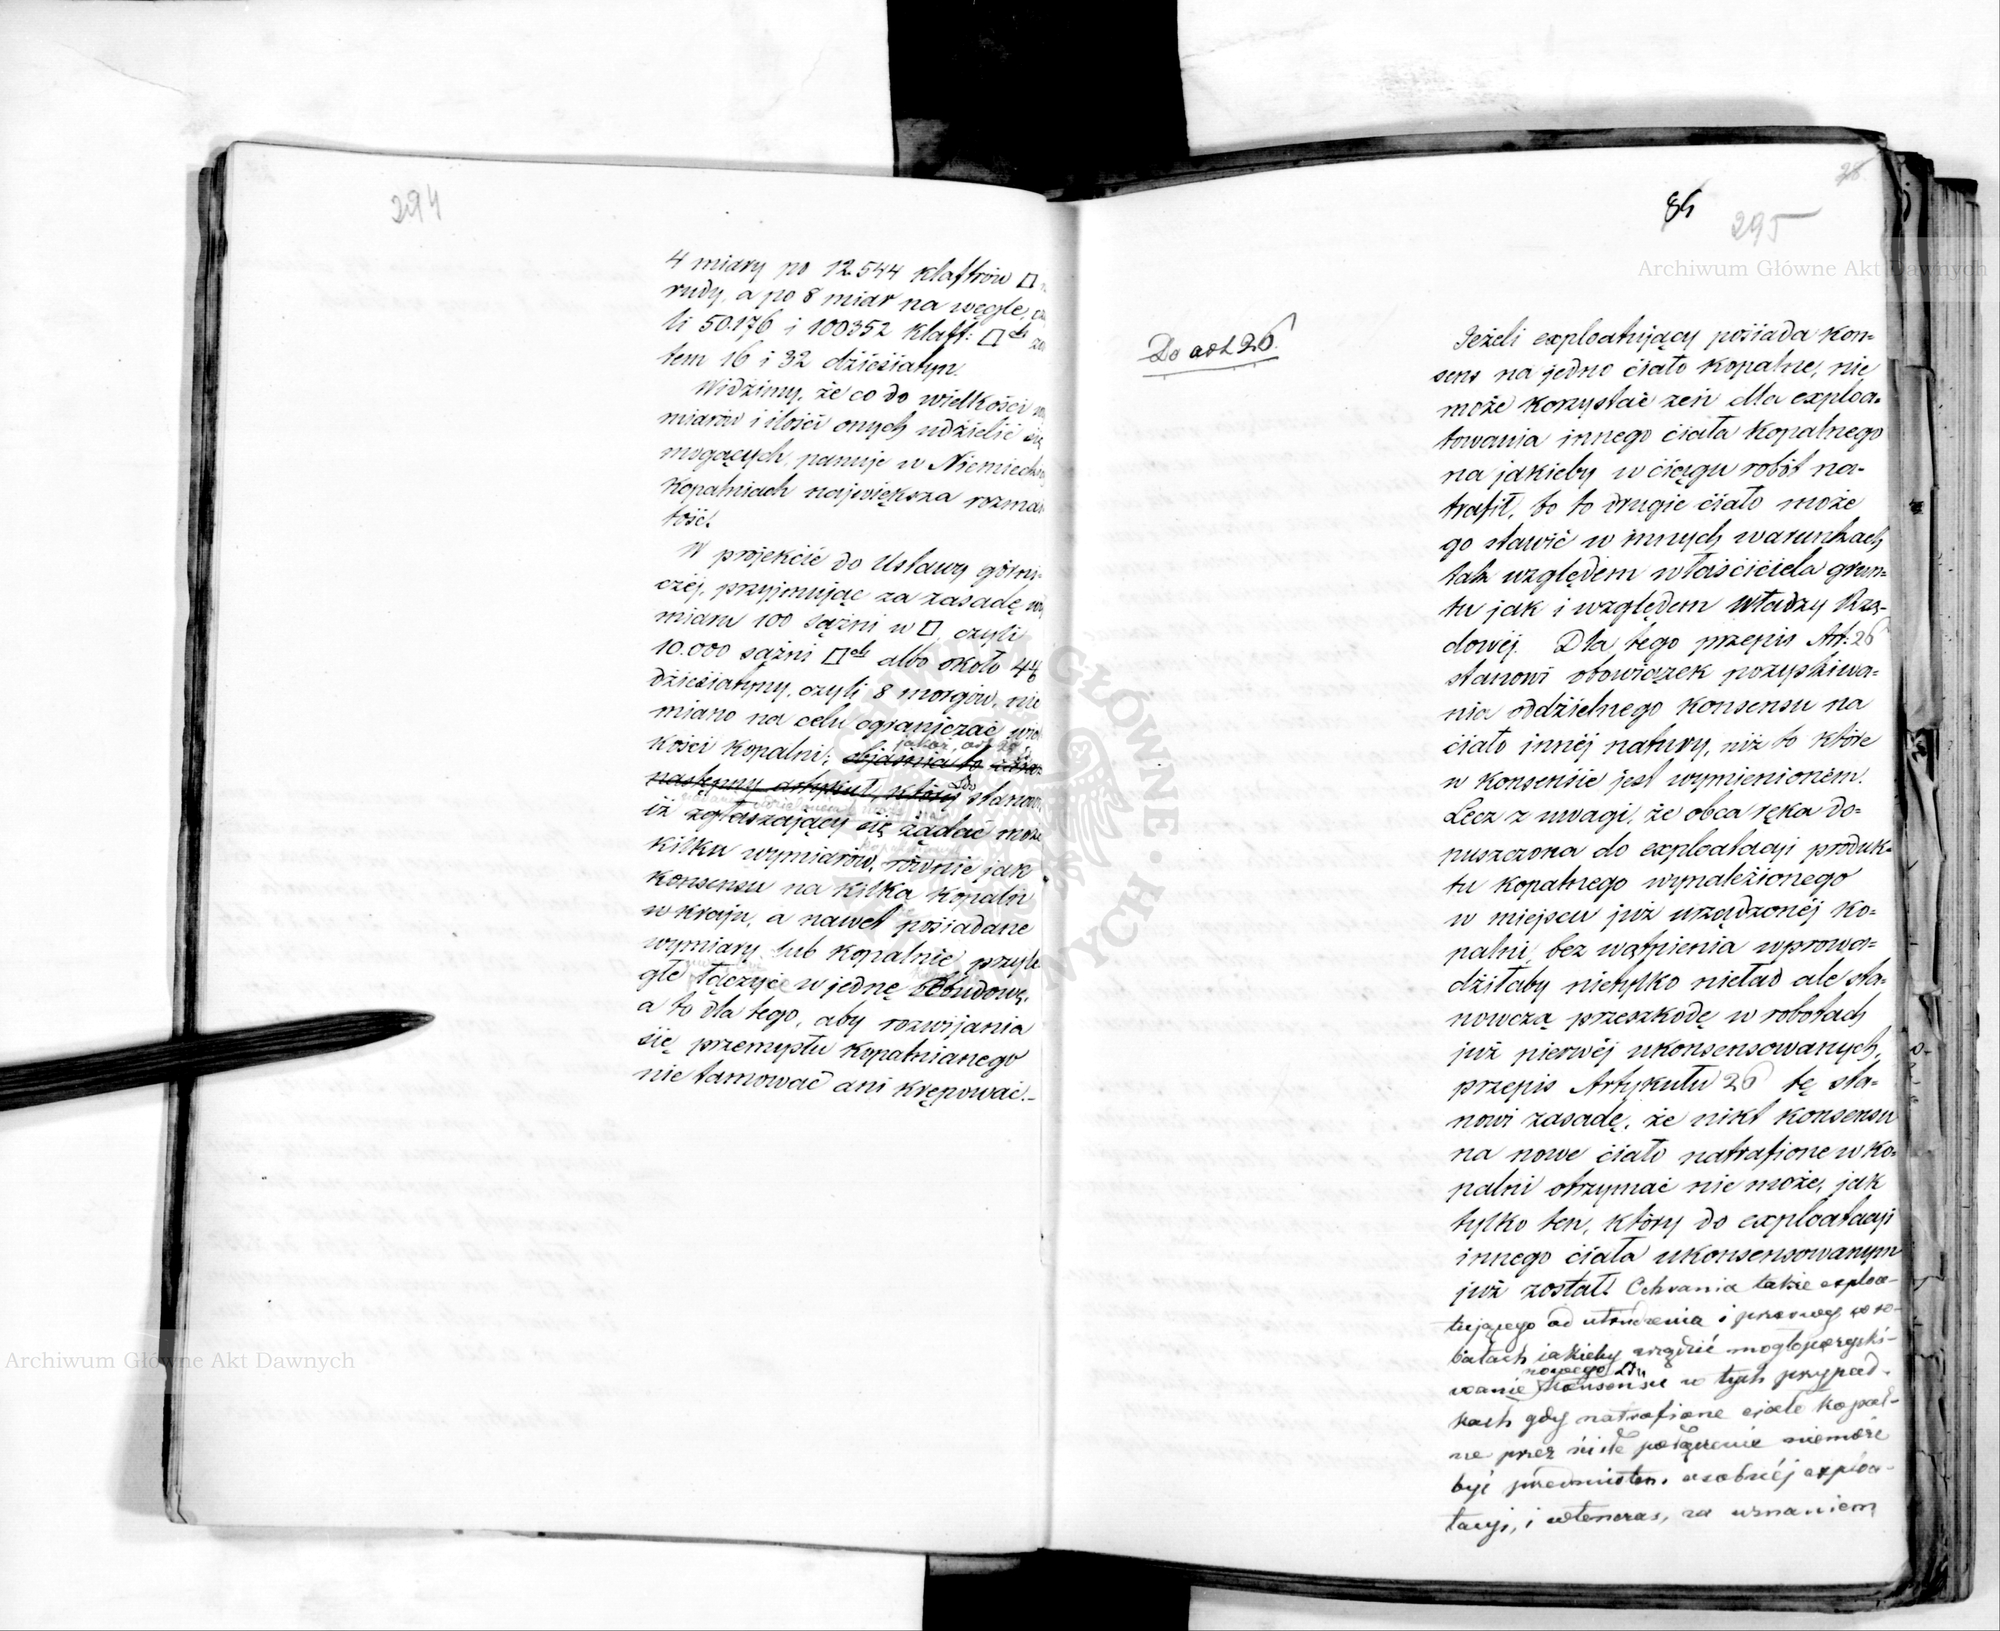 294
4 miary po 12.544 klaftrów □
rudy, a po 8 miar na węgle,
li 50.176 i 100352 klaft: □ch
tem 16 i 32 dziesiatyn.
Widzimy, że co do wielkości
miarów i ilości onych udzielić się
mogących, panuje w Niemieckich
kopalniach największa rozmai
tość.
W projekcie do Ustawy górni-
czéj, przyjmując za zasadę
miaru 100 sążni w □, czyli
10.000 sążni □ch albo około 4
dziesiatyny, czyli 8 morgów, nie
miano na celu ograniczać wiel
kości kopalni; objaśnia to
jakoż
następny artykuł, który stanowi
iż zgłaszający się żądać może
kilku wymiarów, równie jak
konsensu na kilka kopalń
w kraju, a nawet posiadane
wymiary lub kopalnie przyle
głe łączyć w jednę obudowę,
a to dla tego, aby rozwijania
się przemysłu kopalnianego
nie tamować ani krępować.–
28
84
295
Do art 26.
Jeżeli exploatujący posiada kon=
sens na jedno ciało kopalne, nie
może korzystać zeń dla exploa=
towania innego ciała kopalnego
na jakieby w ciągu robót na=
trafił, bo to drugie ciało może
go stawić w innych warunkach
tak względem właściciela grun=
tu jak i względem Władzy Rzą=
dowéj. Dla tego przepis Art: 26
stanowi obowiązek pozyskiwa=
nia oddzielnego konsensu na
ciało innéj natury, niż to które
w konsensie jest wymienionem.
Lecz z uwagi, że obca ręka do=
puszczona do exploatacji produk=
tu kopalnego wynalezionego
w miejscu już urządzonéj ko=
palni, bez wątpienia wprowa=
dziłaby nietylko nieład ale sta=
nowczą przeszkodę w robotach
już pierwéj ukonsensowanych,
przepis Artykułu 26 tę sta=
nowi zasadę, że nikt konsensu
na nowe ciało natrafione w ko=
palni otrzymać nie może, jak
tylko ten, który do exploatacji
innego ciała ukonsensowanym
już został. Ochrania także exploa-
tującego od utrudzenia i przerwy w ro-
botach jakieby wrządzić mogło pozyski-
nowego
wanie konsensu w tych przypad-
kach gdy natrafione ciało kopal-
ne przez ścisłe połączenie niemoże
być przedmiotem osobnéj exploa-
tacyi, i wtenczas, za uznaniem
Archiwum Główne Akt Dawnych
Archiwum Główne Akt Dawnych